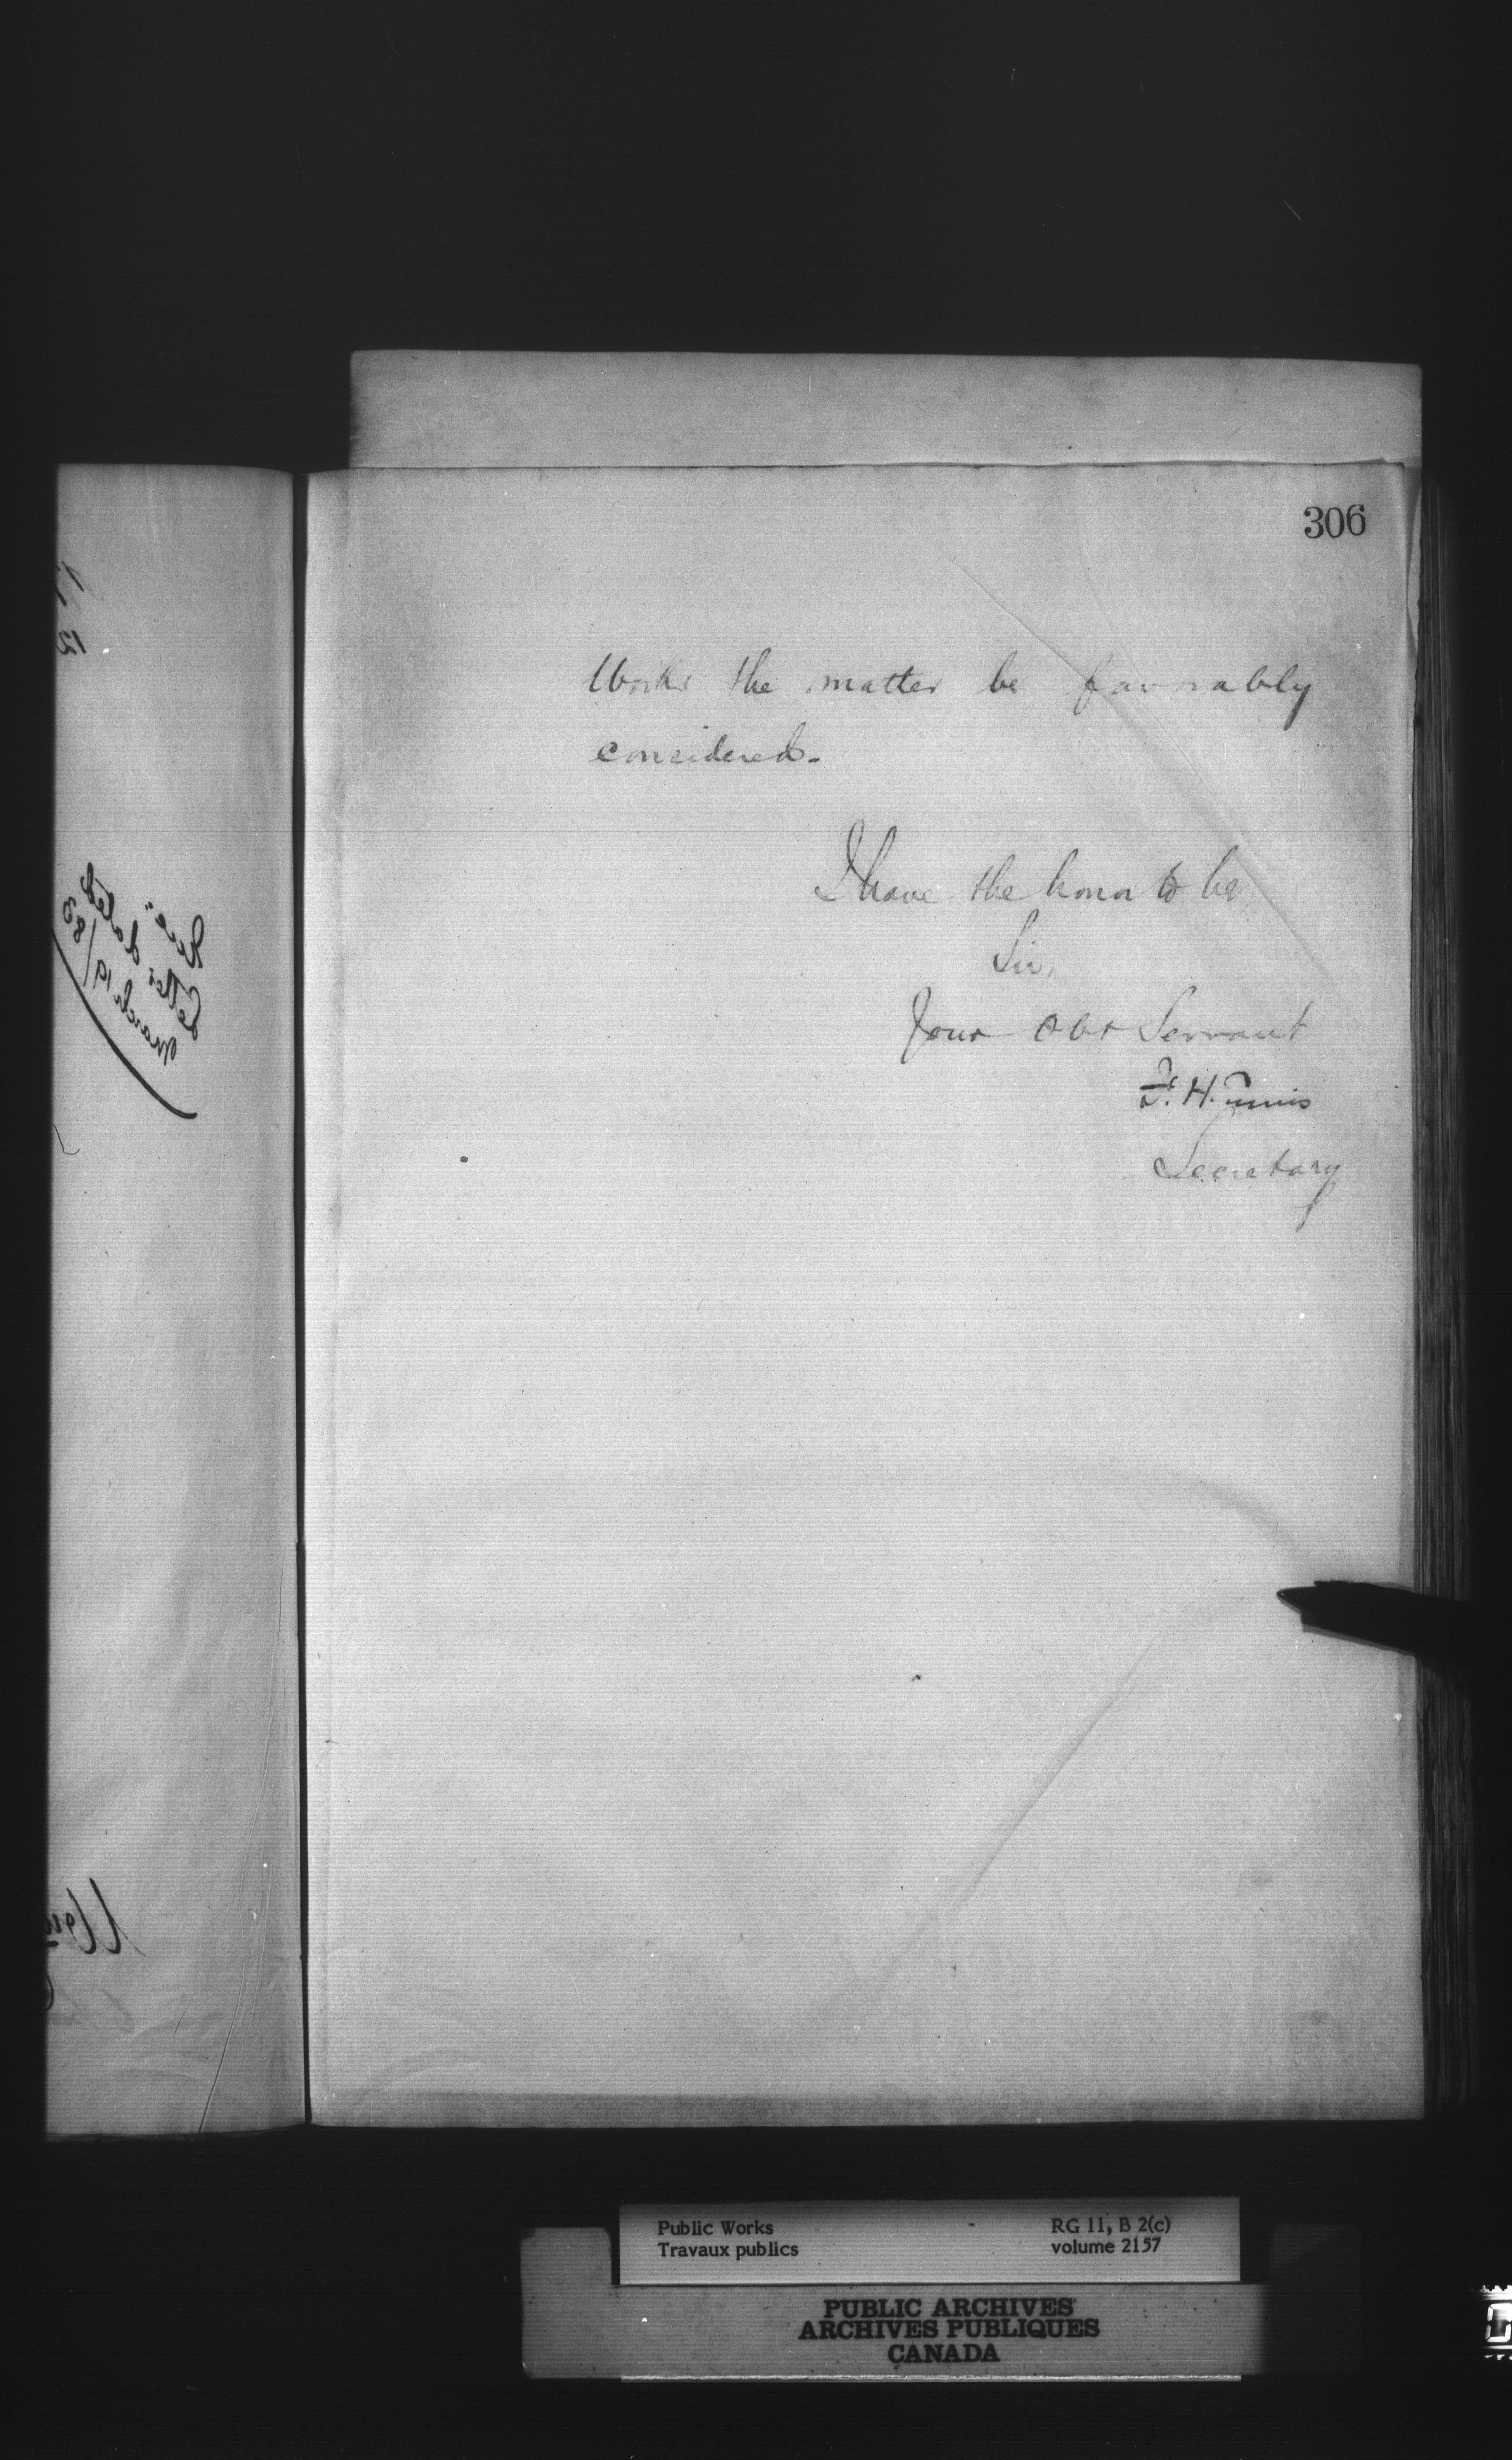 306
Works the matter be favorably
considered.
I have the honor to be
Sir,
Your Obt Servant
F. H. Ennis
Secretary
See:
Letter dated
March 19/83
Public Works
Travaux publics
RG 11, B 2(c)
volume 2157
PUBLIC ARCHIVES
ARCHIVES PUBLIQUES
CANADA